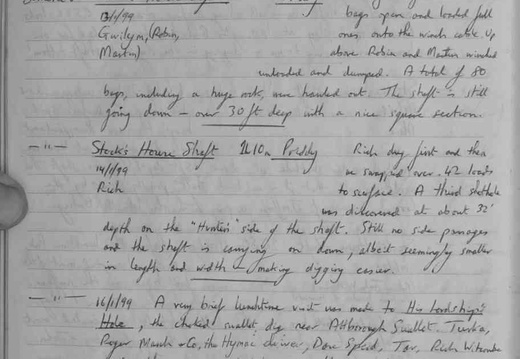 13/1/99 bags open and loaded full
Gwilym, (Robin, ones onto the winch cable. Up
Martin) above Robin and Martin winched
unloaded and dumped. A total of 80
bags, including a huge rock, were hauled out. The shaft is still
going down – over 30 ft deep with a nice square section.
—"— Stock's House Shaft Priddy Rich dug first and then
14/1/99 we swapped over. 42 loads
Rich to surface. A third shothole
was discovered at about 32'
depth on the "Hunters" side of the shaft. Still no side passages
and the shaft is carrying on down, albeit seemingly smaller
in length and width – making digging easier.
—"— 16/1/99 A very brief lunchtime visit was made to His Lordship's
Hole, the choked swallet dig near Attborough Swallet. Tuska,
Roger Marsh & Co, the Hymac driver, Dave Speed, Tav, Rich Witcombe